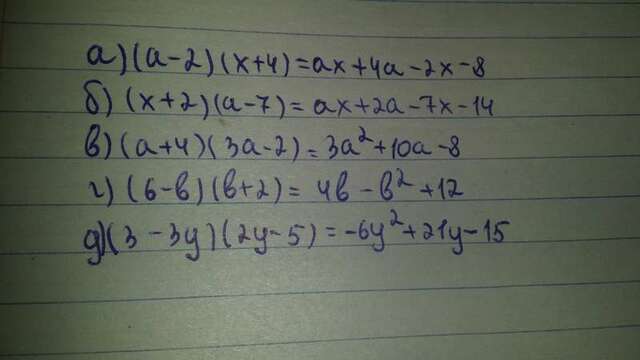 а) (а-2)(x+4)=ax+4a-2x-8
б) (x+2)(a-7)=ax+2a-7x-14
в) (a+4)(3a-2)=3a²+10a-8
г) (6-b)(b+2)=4b-b²+12
д) (3-3y)(2y-5)=-6y²+21y-15